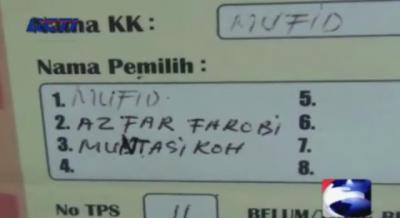 Nama KK : MUFID
Nama Pemilih :
1. MUFID. 5.
2. AZFAR FAROBI 6.
3. MUNTASIKOH 7.
4. 8.
No TPS 11 BELUM/